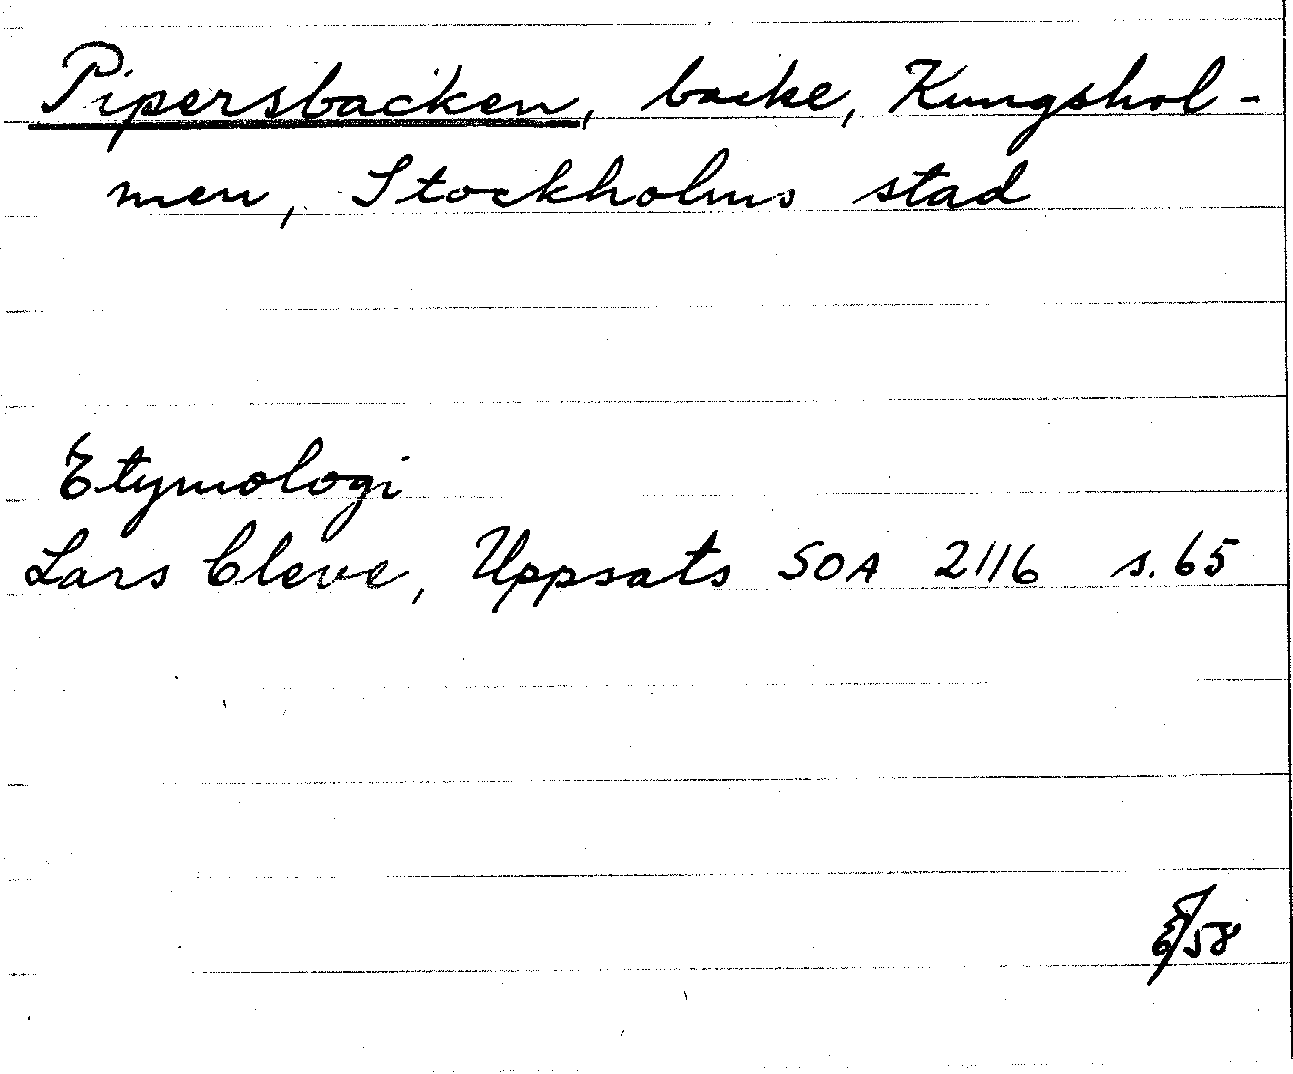 Pipersbacken, backe, Kungshol-
men, Stockholms stad
Etymologi
Lars Cleve, Uppsats SOA 2116 s. 65
/58